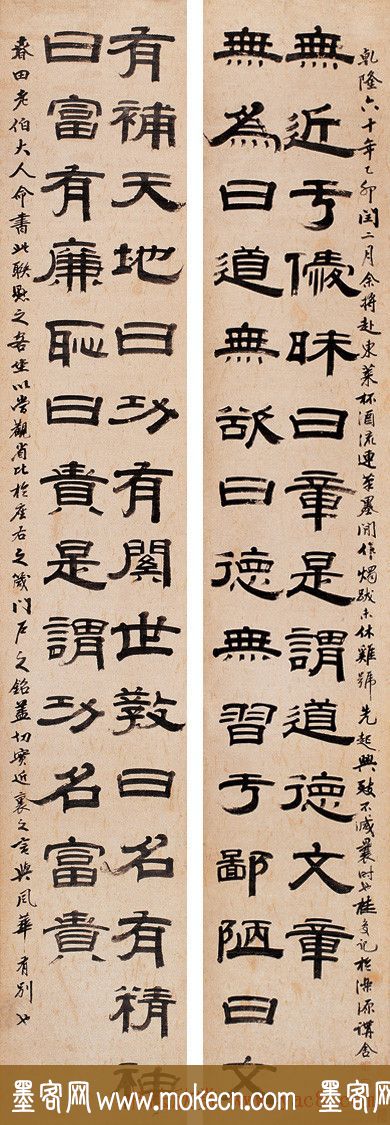 乾隆六十年乙卯閏二月余將赴東萊杯酒流連筆墨間作燭跋未休雞號先起興致不減曩時也桂馥記於濼源講舍
無為曰道無欲曰德無習于鄙陋曰文
無近于僾昧曰章是謂道德文章
有補天地曰功有關世教曰名有精神
曰富有廉恥曰貴是謂功名富貴
春田老伯大人命書此聯懸之吾坐以當觀省比於座右之箴門戶之銘蓋切實近裏之言與風華有別也
墨客网 www.mokecn.com 墨客网